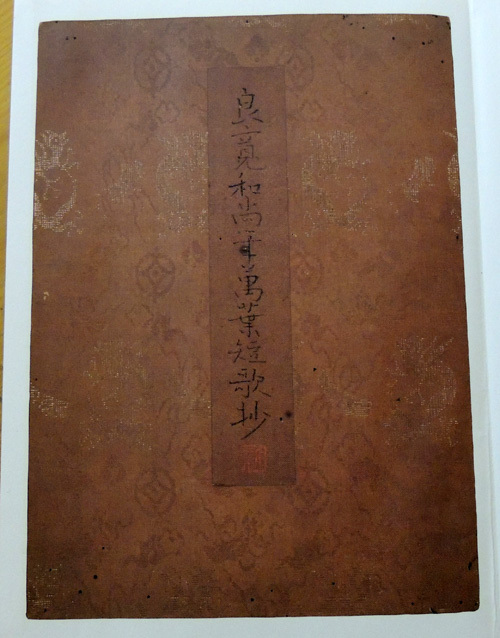 良寛和尚筆萬葉短歌抄